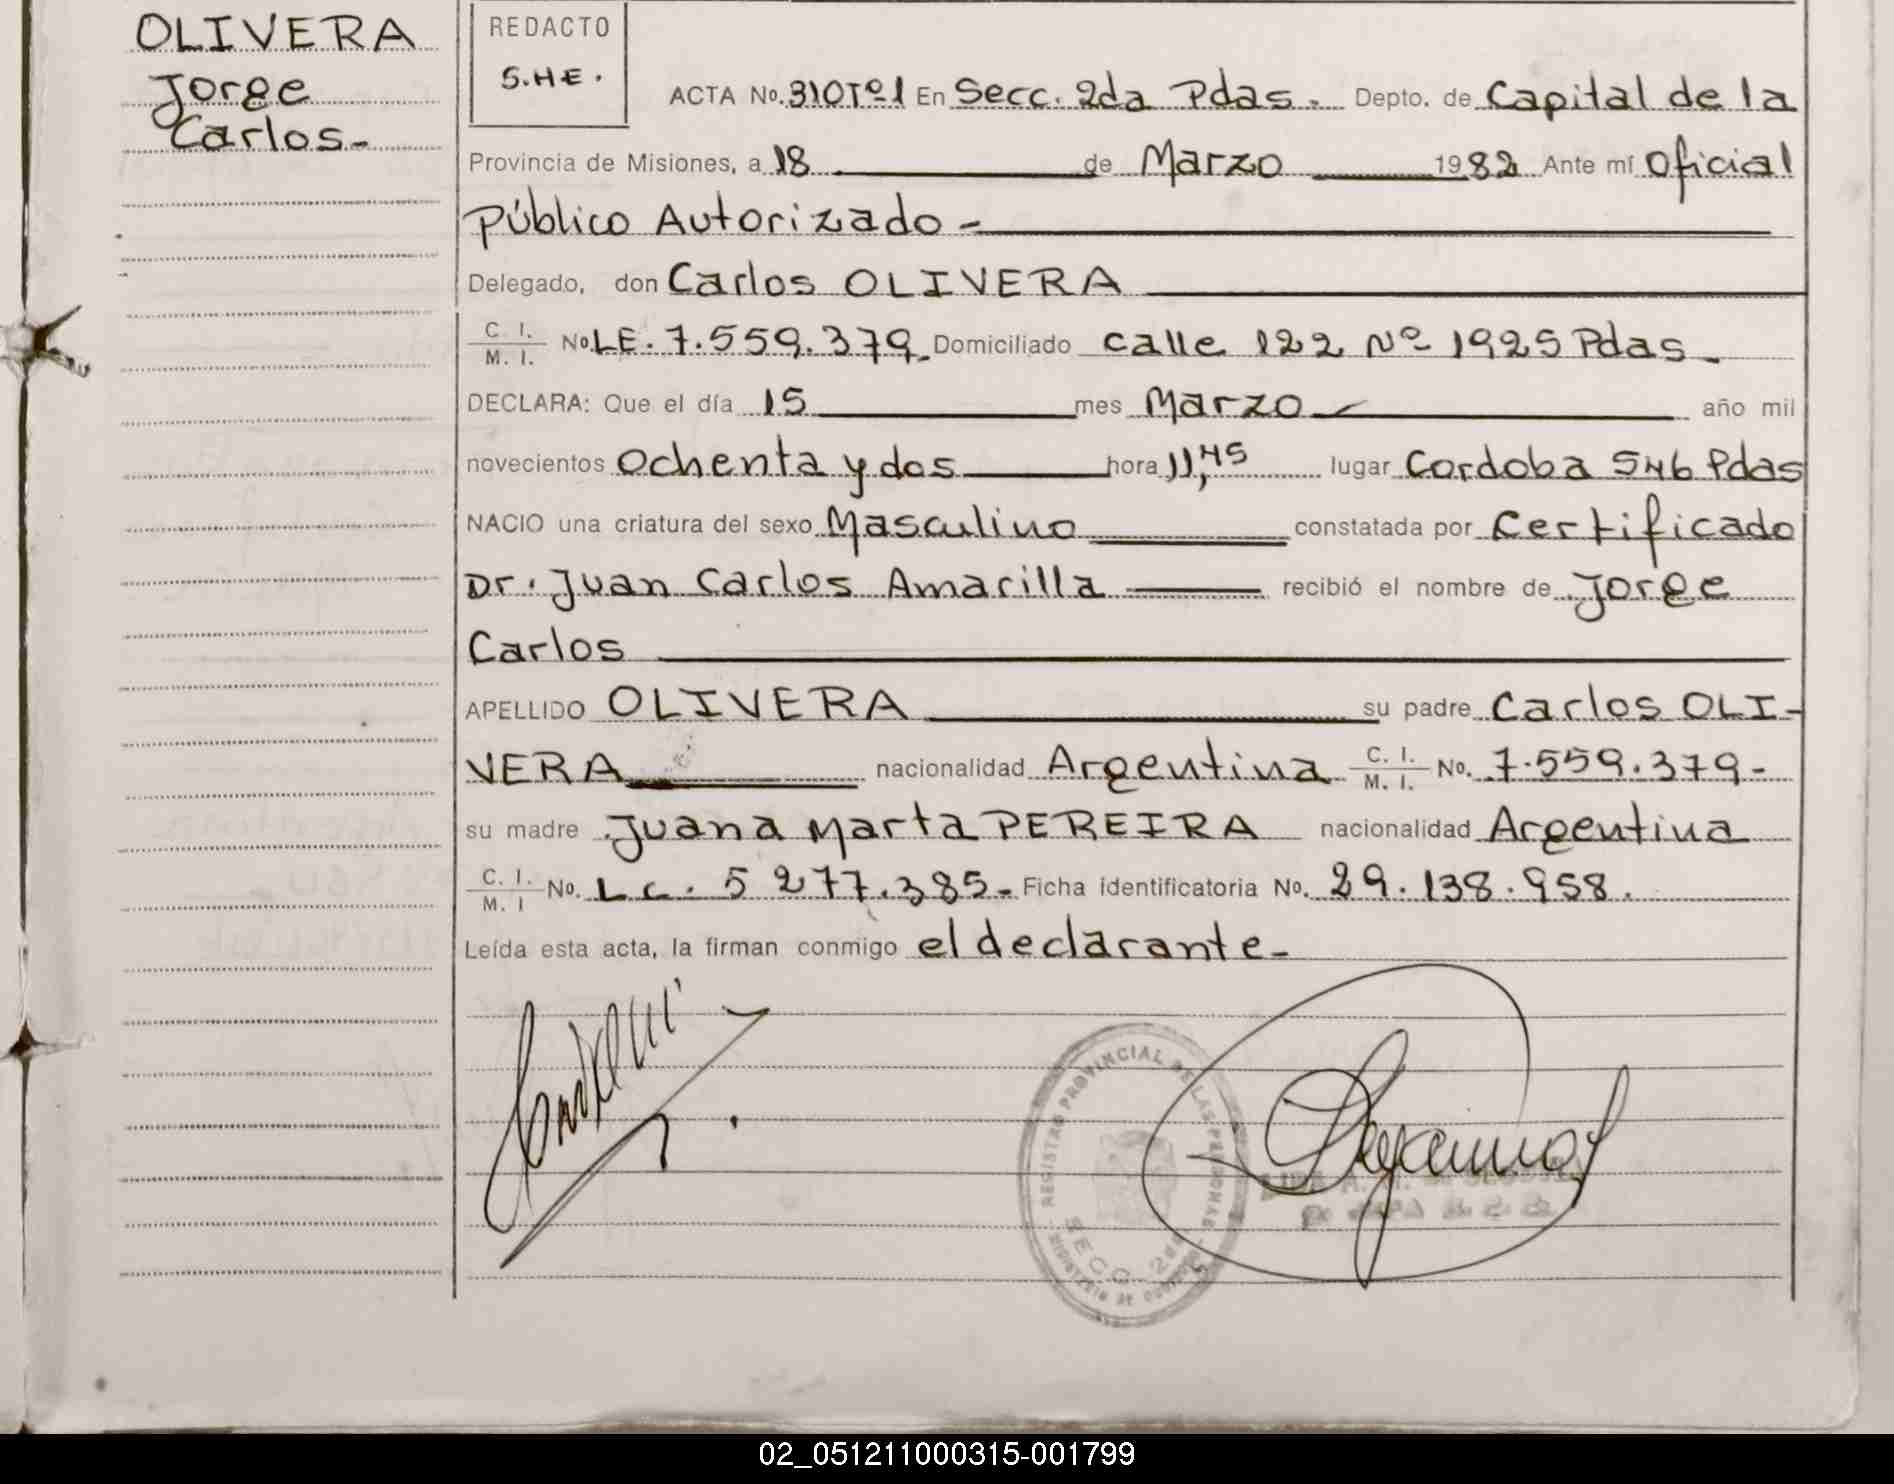 OLIVERA
Jorge
Carlos-
REDACTO
S.HE.
ACTA No. 310Tº1 En Secc. 2da Pdas. Depto. de Capital de la
Provincia de Misiones, a 18 de Marzo 1982 Ante mí Oficial
Público Autorizado -
Delegado, don Carlos OLIVERA
C. I. / M. I. No LE. 7.559.379. Domiciliado calle 122 Nº 1925 Pdas -
DECLARA: Que el día 15 mes Marzo año mil
novecientos Ochenta y dos hora 11,45 lugar Cordoba 546 Pdas
NACIO una criatura del sexo Masculino constatada por Certificado
Dr. Juan Carlos Amarilla recibió el nombre de Jorge
Carlos
APELLIDO OLIVERA su padre Carlos OLI-
VERA nacionalidad Argentina C. I. / M. I. No. 7.559.379-
su madre Juana Marta PEREIRA nacionalidad Argentina
C. I. / M. I No. L C. 5 277.385- Ficha identificatoria No. 29.138.958.
Leída esta acta, la firman conmigo el declarante-
REGISTRO PROVINCIAL DE LAS PERSONAS
SECC. 2da
02_051211000315-001799